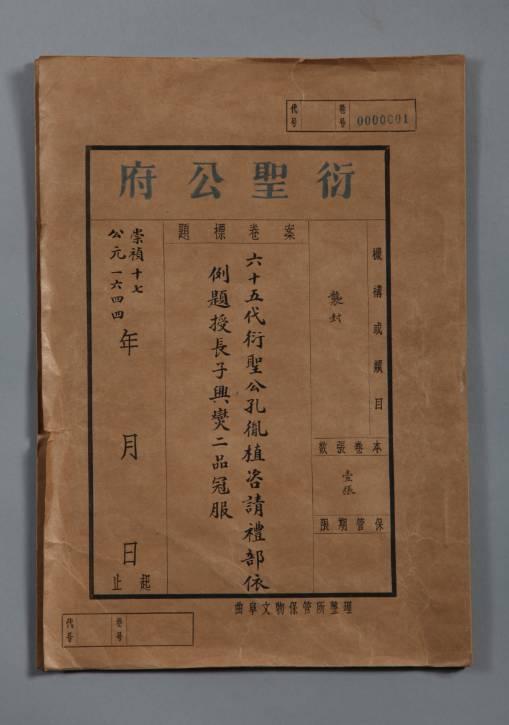 代号
卷号 0000001
衍聖公府
機構或類目
襲封
本卷張數
壹張
保管期限
案卷標題
六十五代衍聖公孔胤植咨請禮部依
例題授長子興燮二品冠服
崇禎十七
公元一六四四 年 月 日
起止
曲阜文物保管所整理
代号
卷号